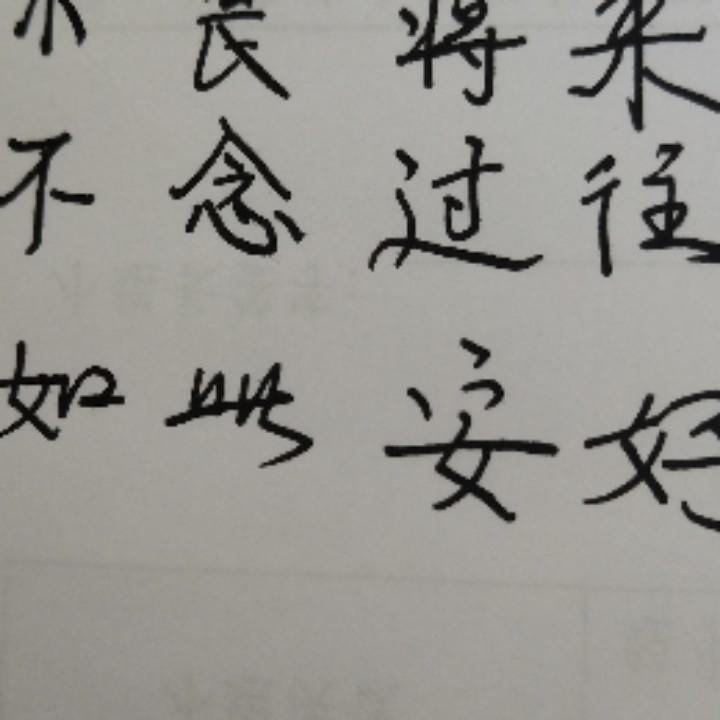 不畏将来
不念过往
如此安好